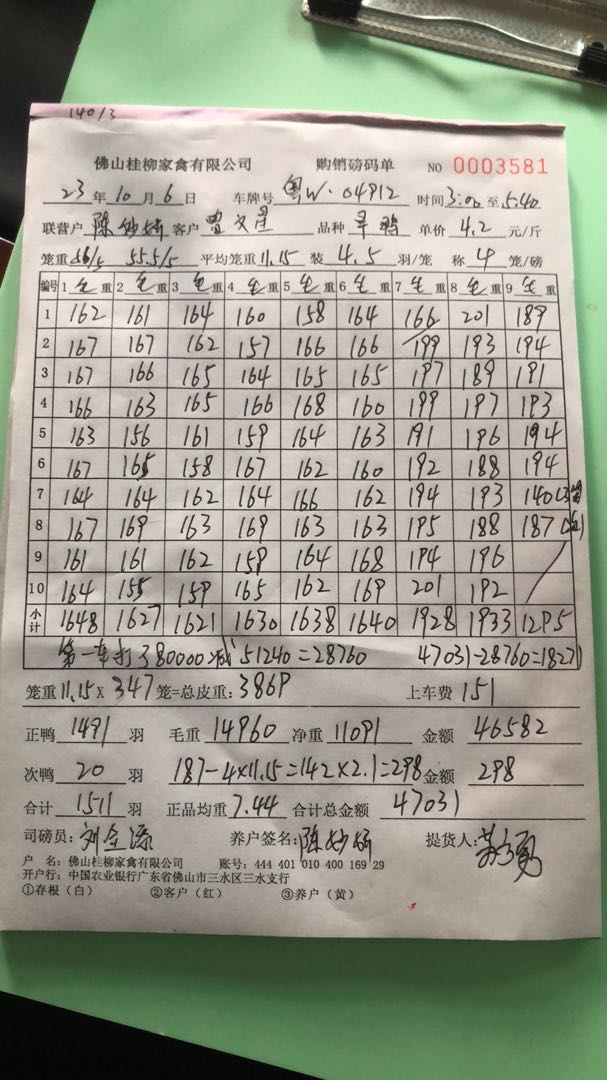 140/3
佛山桂柳家禽有限公司 购销磅码单 NO 0003581
23年10月6日 车牌号 粤W·04912 时间3:00至5:40
联营户 客户 曾文星 品种 单价 4.2 元/斤
笼重56/5 55.5/5 平均笼重11.15 装 4.5 羽/笼 称 4 笼/磅
编号 1 毛重 2 毛重 3 毛重 4 毛重 5 毛重 6 毛重 7 毛重 8 毛重 9 毛重
1 162 161 164 160 158 164 166 201 189
2 167 167 162 157 166 166 199 193 194
3 167 166 165 164 165 165 197 189 191
4 166 163 165 166 168 160 199 197 193
5 163 156 161 159 164 163 191 196 194
6 167 165 158 167 162 160 192 188 194
7 164 164 162 164 166 162 194 193 140(3笼
8 167 169 163 169 163 163 195 188 187
9 161 161 162 159 164 168 194 196
10 164 155 159 165 162 169 201 192
小计 1648 1627 1621 1630 1638 1640 1928 1933 1295
第一车打了80000减51240=28760 47031-28760=18271
笼重11.15×347笼=总皮重:3869 上车费 151
正鸭 1491 羽 毛重 14960 净重 11091 金额 46582
次鸭 20 羽 187-4×11.15=142×2.1=298 金额 298
合计 1511 羽 正品均重 7.44 合计总金额 47031
司磅员: 养户签名: 提货人:
户 名:佛山桂柳家禽有限公司 账号:444 401 010 400 169 29
开户行:中国农业银行广东省佛山市三水区三水支行
①存根（白） ②客户（红） ③养户（黄）